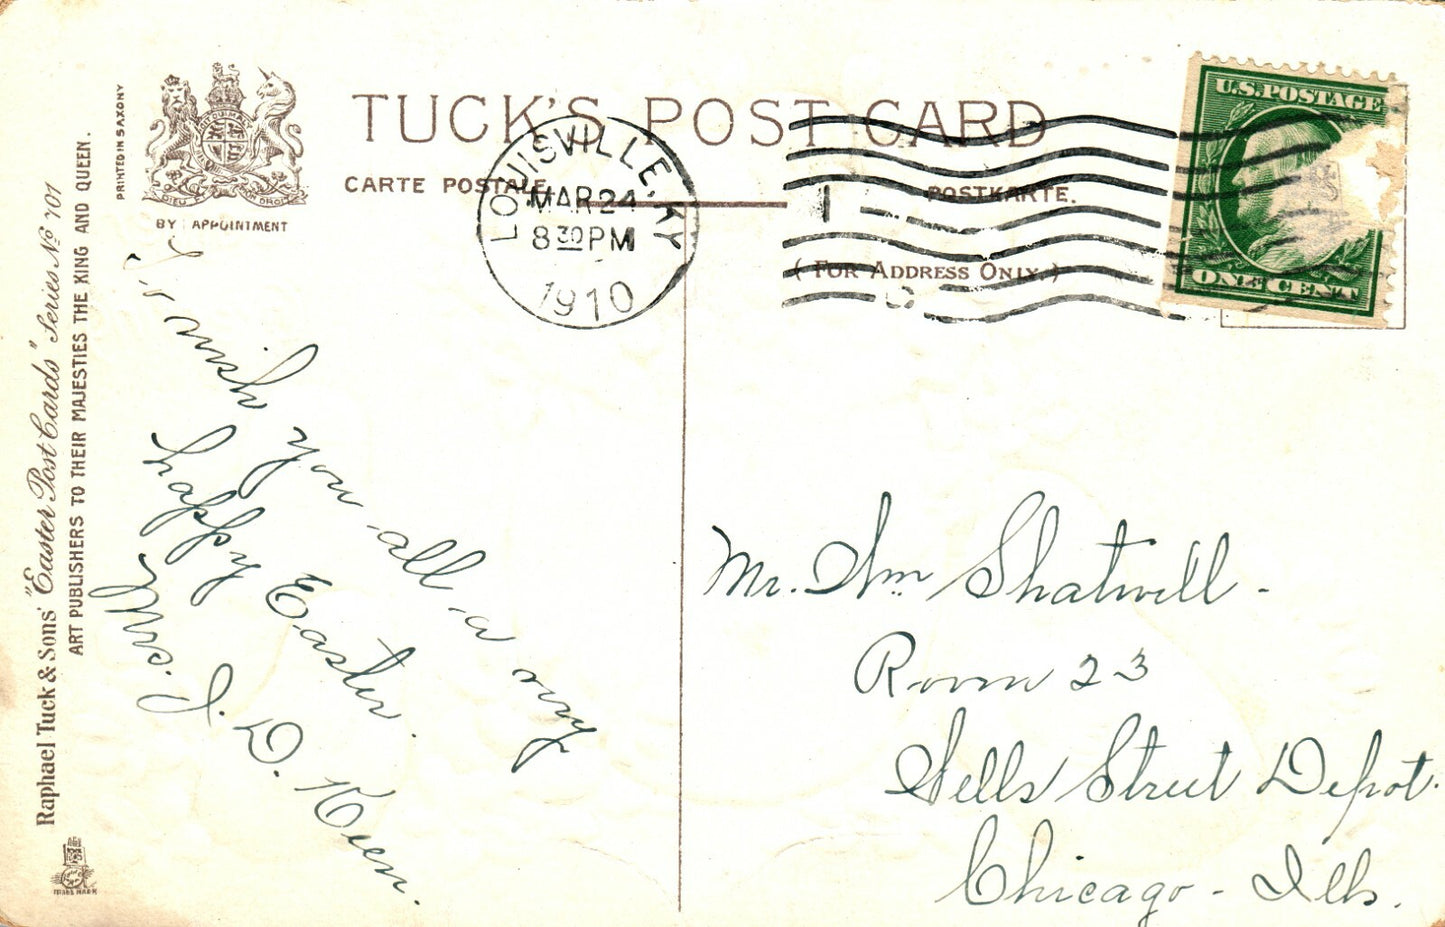 TUCK'S POST CARD
CARTE POSTALE
POSTKARTE.
( FOR ADDRESS ONLY. )
PRINTED IN SAXONY
BY APPOINTMENT
DIEU ET MON DROIT
Raphael Tuck & Sons' "Easter Post Cards" Series No 701
ART PUBLISHERS TO THEIR MAJESTIES THE KING AND QUEEN.
TRADE MARK
LOUISVILLE, KY
MAR 24
8 30 PM
1910
1
U.S. POSTAGE
ONE CENT
I wish
you all a very
happy Easter.
Mrs. J. D. Keen.
Mr. Wm Shatwell -
Room 23
Wells Street Depot.
Chicago - Ills.